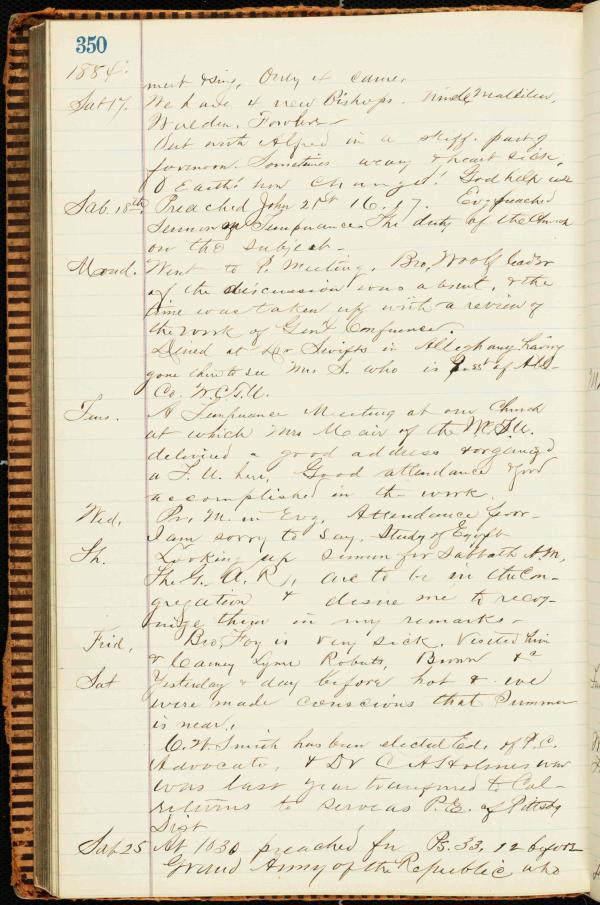 350
1884.
meet & sing, Only 4 came.
Sat 17. We have 4 new Bishops. Ninde, Mallilieu,
Walden, Fowler
Out with Alfred in a skiff. part of
forenoon. Sometimes weary & heart sick.
O Earth! how change! God help us
Sab. 18th Preached John 21st 16.17. Evg preached
Sermon on Temperance. The duty of the Church
on the subject.
Mond. Went to P. Meeting, Bro, Woolf leader
of the discussion was absent, & the
time was taken up with a review of
the work of Genl Conference.
Dined at Dr Swifts in Alleghany having
gone there to see Mrs S. who is Prsst of All-
Co. W.C.T.U.
Tues. A Temperance Meeting at our Church
at which Mrs McAir of the W.C.T.U.
delivered a good address & organized
a T. U. here, Good attendance & good
accomplished in the work.
Wed, Pr. M. in Evg. Attendance poor-
I am sorry to say. Study of Egypt
Th. Looking up sermon for Sabbath A.M,
The G. A. R, are to be in the Con-
gregation & desire me to recog-
nize them in my remarks-
Frid, Bro, Foy is very sick. Visited him
& Lyme Roberts, Brown &c
Sat Yesterday & day before hot & we
were made conscious that Summer
is near.
C. W. Smith has been elected Ed. of P.C.
Advocate, & Dr C A Holmes who
was last year transferred to Cal-
returns to serve as P.E. of Pittsbg
Dist
Sab 25 At 1030 preached fr Ps. 33, 12 before
Grand Army of the Republic who